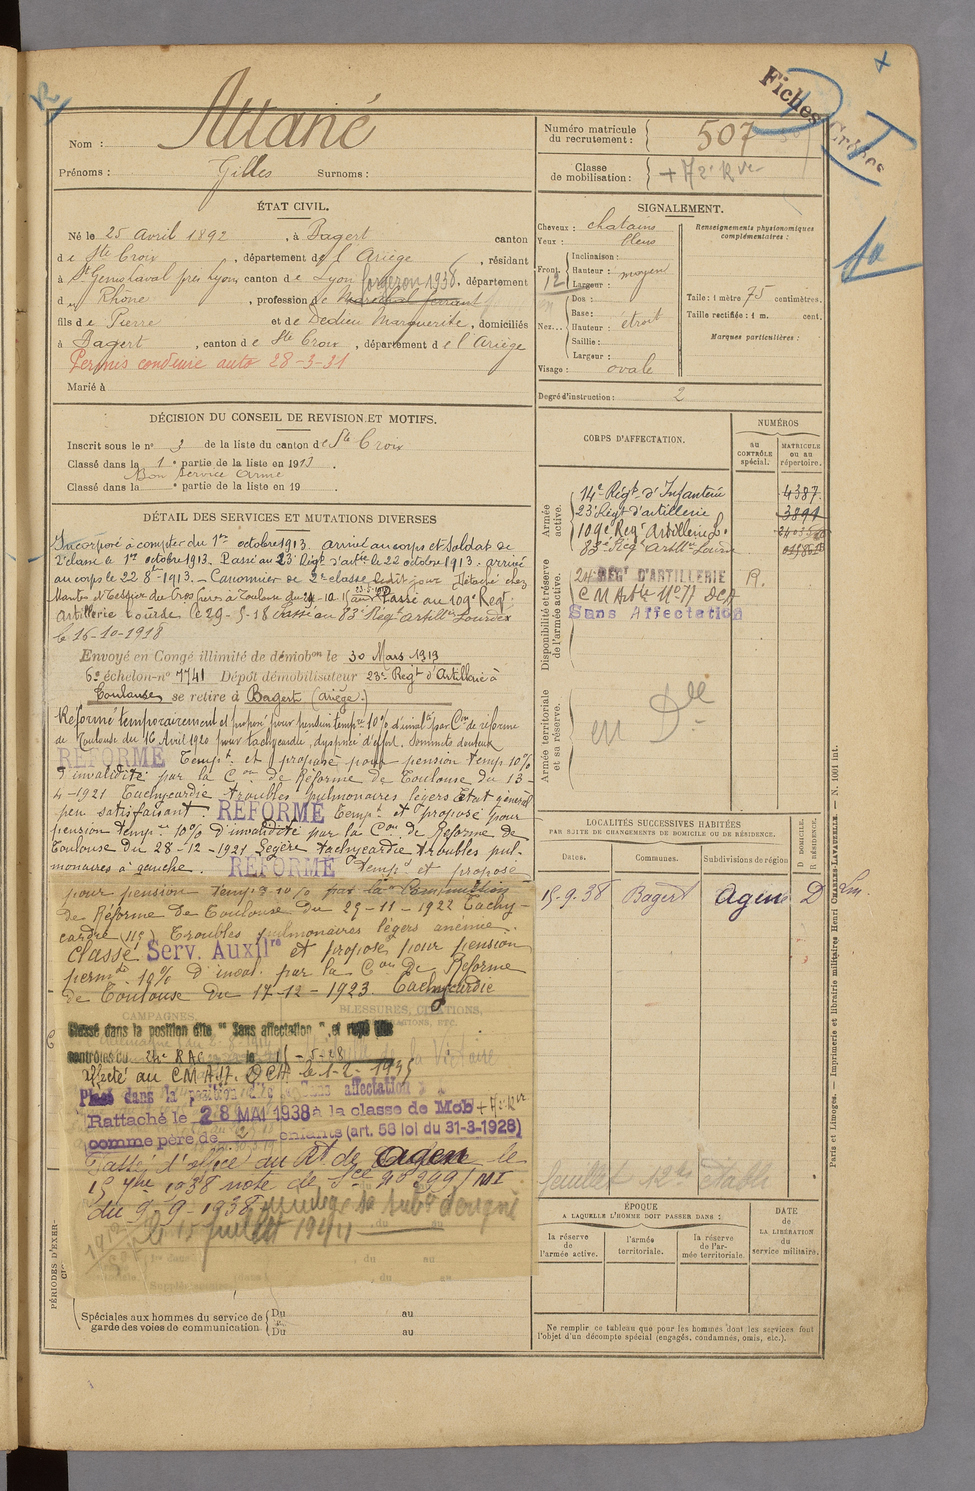 Fiches
Croisées
Nom : Attané
Prénoms : Gilles Surnoms :
Numéro matricule
du recrutement : 507
Classe
de mobilisation : + 7 2e Rve
ÉTAT CIVIL.
Né le 25 Avril 1892, à Bagert canton
de Ste Croix, département de l'Ariège, résidant
à St Genis Laval près Lyon, canton de Lyon forgeron 1938. département
du Rhône, profession de Maréchal ferrant
fils de Pierre et de Dedieu Marguerite, domiciliés
à Bagert, canton de Ste Croix, département de l'Ariège
Permis conduire auto 28-3-31
Marié à
SIGNALEMENT.
Cheveux : chatains
Yeux : bleus
Front. 12
Inclinaison :
Hauteur : moyen
Largeur :
Nez...
Dos :
Base :
Hauteur : étroit
Saillie :
Largeur :
Visage : ovale
Renseignements physionomiques
complémentaires :
Taille : 1 mètre 75 centimètres.
Taille rectifiée : 1 m. cent.
Marques particulières :
Degré d'instruction : 2
DÉCISION DU CONSEIL DE REVISION ET MOTIFS.
Inscrit sous le no 3 de la liste du canton de Ste Croix
Classé dans la 1e partie de la liste en 1913
Bon Service Armé
Classé dans la e partie de la liste en 19 .
DÉTAIL DES SERVICES ET MUTATIONS DIVERSES
Incorporé à compter du 1er octobre 1913. arrivé au corps et soldat de
2e classe le 1er octobre 1913. Passé au 23e Régt d'artie le 22 octobre 1913. arrivé
au corps le 22 8bre 1913. — Canonnier de 2e classe ledit jour Détaché chez
à Toulouse du Passé au 109e Régt
Artillerie Lourde le 29-5-18 Passé au 83e Régt Artillie Lourde
le 16-10-1918
Envoyé en Congé illimité de démobon le 30 Mars 1919
6e échelon no 7741 Dépôt démobilisateur 23e Regt d'Artillerie à
Toulouse se retire à Bagert (Ariège)
Réformé temporairement et proposé pour pension tempre 10% d'invalité par Con de réforme
de Toulouse du 16 Avril 1920 pour tachycardie, dyspnée d'effort. Sommets douteux
RÉFORMÉ Tempt et proposé pour pension temp 10%
d'invalidité par la Con de Réforme de Toulouse du 13-
4-1921 Tachycardie troubles pulmonaires légers Etat général
peu satisfaisant. RÉFORMÉ Tempt et proposé pour
pension tempre 10% d'invalidité par la Con de Réforme de
Toulouse du 28-12-1921 Légère tachycardie troubles pul-
monaires à gauche. RÉFORMÉ Tempt et proposé
pour pension tempre 10% par la Commission
de Réforme de Toulouse du 29-11-1922 Tachy-
cardie (115) Troubles pulmonaires légers anémie.
Classé Serv. Auxilre et proposé pour pension
permte 10% d'inval. par la Con de Réforme
de Toulouse du 17-12-1923. Tachycardie
CAMPAGNES. BLESSURES, CITATIONS,
la Victoire
Classé dans la position dite "Sans affectation", et rayé des
contrôles du 24e RAC le 15-5-28
affecté au C M A 17. DCA le 1-2-1935
Placé dans la position dite Sans affectation
Rattaché le 28 MAI 1938 à la classe de Mob + 7 2e Rve
comme père de 2 enfants (art. 58 loi du 31-3-1928)
d'office au Rt de Agen le
15 7bre 1938 note de Sce no 9299/MI
du 9-9-1938
le 15 juillet 1941
PÉRIODES D'EXER-
Spéciales aux hommes du service de
garde des voies de communication
Du au
Du au
CORPS D'AFFECTATION.
NUMÉROS
au
CONTRÔLE
spécial.
MATRICULE
ou au
répertoire.
Armée
active.
14e Régt d'Infanterie 4387
23e Régt d'artillerie 3894
109e Reg Artillerie L.
83e Reg Artillie Lourde
Disponibilité et réserve
de l'armée active.
24e RÉGt D'ARTILLERIE R.
C M Artie No 17 DCA
Sans Affectation
Armée territoriale
et sa réserve.
en Dlle
LOCALITÉS SUCCESSIVES HABITÉES
PAR SUITE DE CHANGEMENTS DE DOMICILE OU DE RÉSIDENCE.
Dates. Communes. Subdivisions de région D. DOMICILE. R. RÉSIDENCE.
15-9-38 Bagert Agen D
feuillet 12 bis établi
ÉPOQUE
A LAQUELLE L'HOMME DOIT PASSER DANS :
la réserve
de
l'armée active.
l'armée
territoriale.
la réserve
de l'ar-
mée territoriale.
DATE
de
LA LIBÉRATION
du
service militaire.
Ne remplir ce tableau que pour les hommes dont les services font
l'objet d'un décompte spécial (engagés, condamnés, omis, etc.).
Paris et Limoges. — Imprimerie et librairie militaires Henri CHARLES-LAVAUZELLE. — N. 1001 int.